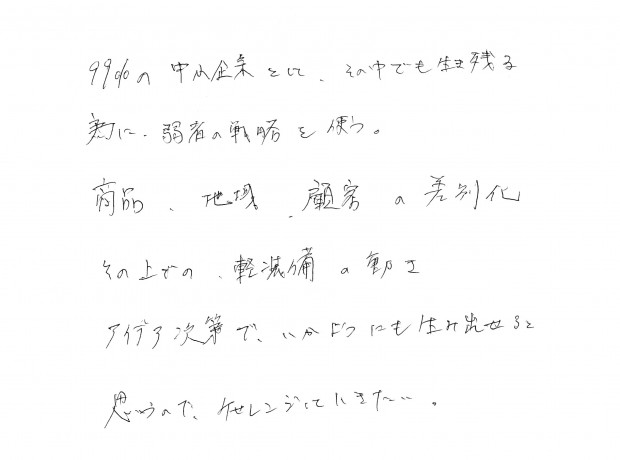 99%の中小企業として、その中でも生き残る
為に、弱者の戦略を使う。
商品、地域、顧客の差別化
その上での、軽減備の動き
アイデア次第で、いかようにも生み出せると
思うので、チャレンジしていきたい。